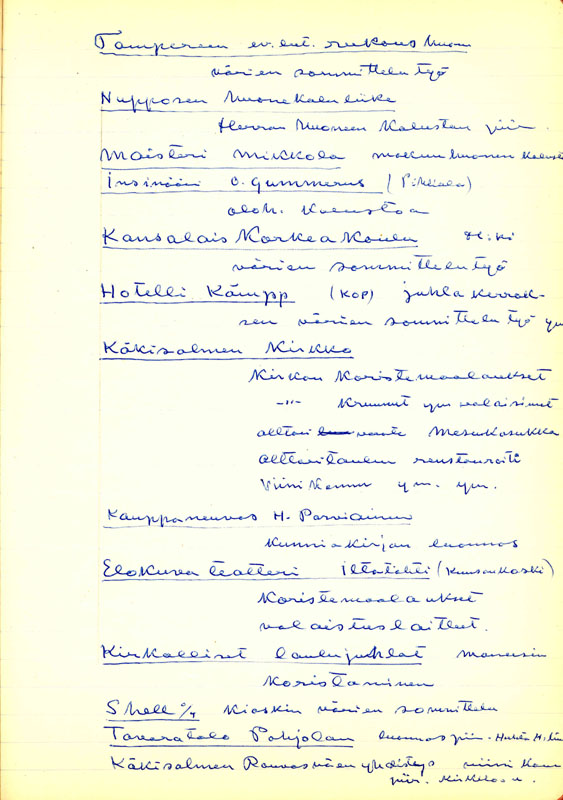 Tampereen ev. lut. rukous huone
värien sommittelu työ
Nupposen huonekaluliike
Herran huoneen kaluston piir.
Maisteri Mikkola makuuhuoneen kalusto
Insinööri O. Gummerus (Pikkala)
oloh. kalustoa
Kansalais Korkea Koulu H:ki
värien sommittelu työ
Hotelli Kämpp (KOP) juhla kerrok-
sen värien sommittelu työ ym
Käkisalmen Kirkko
Kirkon Koristemaalaukset
-"- kruunut ym valaisimet
alttari vaate Mesukasukka
alttaritaulun restauroiti
Viini kannu ym. ym.
Kauppaneuvos H. Parviainen
kunniakirjan luonnos
Elokuva teatteri Iltatähti (Kuusankoski)
Koristemaalaukset
valaistuslaitteet.
Kirkolliset laulujuhlat
koristaminen
Shell o/y kioskin värien sommittelu
Tavaratalo Pohjolan luonnos piir.
Käkisalmen Rouvasväen yhdistys viini kann
piir.